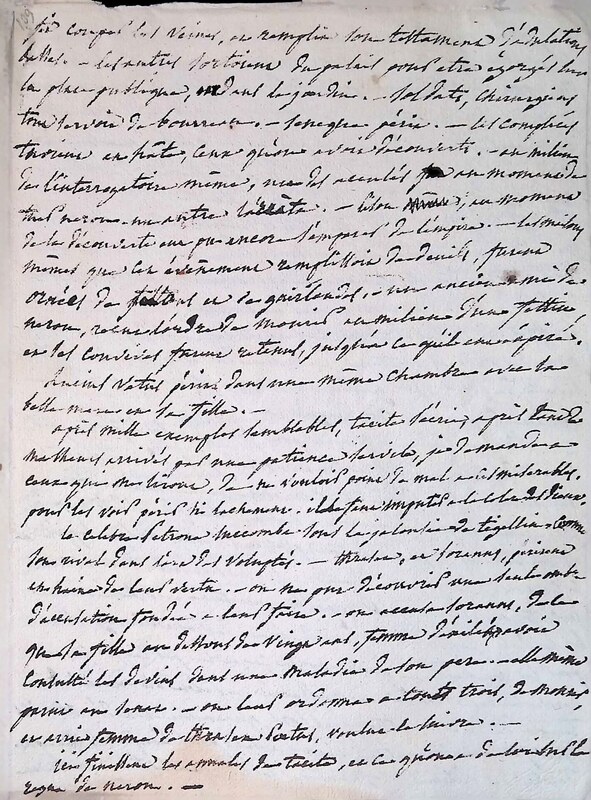 fit couper les veines, en remplir son testament d'adulations
basses. - les autres sortoient du palais pour etre egorgés dans
la place publique, ou dans le jardin. - soldats, chirurgiens
tout servoit de bourreau. - seneque périt. - les complices
en hâte, ceux qu'on avoit découverts. - au milieu
de l'interrogatoire même, un des accusés au moment de
tuer neron. un autre l'arrêta. - Pison même, au moment
de la découverte eut pu encor s'emparer de l'empire. - les maisons
mêmes que cet évènement remplissoit de deuil, furent
ornées de festons et de guirlandes, - un ancien ami de
neron, reçut l'ordre de mourir au milieu d'un festin,
et les convives furent retenus, jusqu'a ce qu'il eut expiré.
Lucius Vetus périt dans une même chambre avec sa
belle mere et sa fille. -
après mille exemples semblables, tacite s'écrie, après tant de
malheurs arrivés par une patience servile, je demande a
ceux que me liront, de ne vouloir point de mal a ces miserables,
pour les voir périr si lachement. il le faut imputer a la colere des dieux.
le celebre Petrone succombe sous la jalousie de tigellin - comme
son rival dans l'art des voluptés. - thrasea, et soranus, périrent
en haine de leur vertu. - on ne put découvrir une seule ombre
d'accusation fondée a leur faire. - on accusa soranus, de ce
que sa fille au dessous de vingt ans, femme d'exilé avoit
consulté les devins dans une maladie de son pere. - elle même
parut au senat. - on leur ordonna a tous trois, de mourir,
et arrie femme de thrasea Petus, voulut le suivre. -
ici finissent les annales de tacite, et ce qu'on a de lui sur le
regne de neron. -